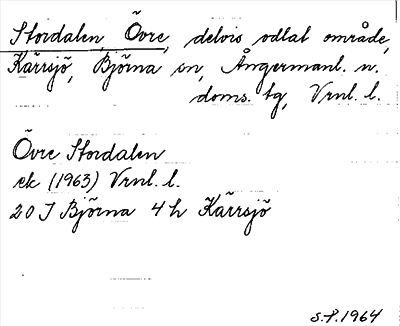 Stordalen, Övre, delvis odlat område,
Kärrsjö, Björna sn, Ångermanl. n.
doms. tg, Vrnl. l.
Övre Stordalen
ek (1963) Vrnl. l.
20 J Björna 4 h Kärrsjö
S.P. 1964